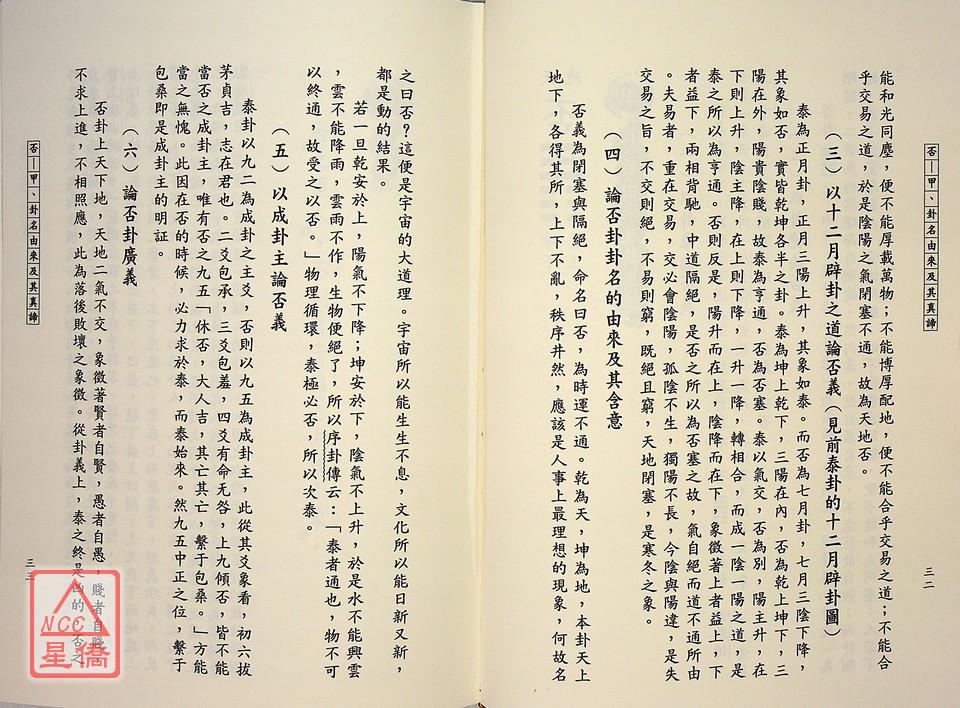 能和光同塵，便不能厚載萬物；不能博厚配地，便不能合乎交易之道；不能合
乎交易之道，於是陰陽之氣閉塞不通，故為天地否。
（三）以十二月辟卦之道論否義（見前泰卦的十二月辟卦圖）
泰為正月卦，正月三陽上升，其象如泰。而否為七月卦，七月三陰下降，
其象如否，實皆乾坤各半之卦。泰為坤上乾下，三陽在內，否為乾上坤下，三
陽在外，陽貴陰賤，故泰為亨通，否為否塞。泰以氣交，否為別，陽主升，在
下則上升，陰主降，在上則下降，一升一降，轉相合，而成一陰一陽之道，是
泰之所以為亨通。否則反是，陽升而在上，陰降而在下，象徵著上者益上，下
者益下，兩相背馳，中道隔絕，是否之所以為否塞之故，氣自絕而道不通所由
。夫易者，重在交易，交必會陰陽，孤陰不生，獨陽不長，今陰與陽違，是失
交易之旨，不交則絕，不易則窮，既絕且窮，天地閉塞，是寒冬之象。
（四）論否卦卦名的由來及其含意
否義為閉塞與隔絕，命名曰否，為時運不通。乾為天，坤為地，本卦天上
地下，各得其所，上下不亂，秩序井然，應該是人事上最理想的現象，何故名
否—甲、卦名由來及其真諦
三二
之曰否？這便是宇宙的大道理。宇宙所以能生生不息，文化所以能日新又新，
都是動的結果。
若一旦乾安於上，陽氣不下降；坤安於下，陰氣不上升，於是水不能興雲
，雲不能降雨，雲雨不作，生物便絕了，所以序卦傳云：「泰者通也，物不可
以終通，故受之以否。」物理循環，泰極必否，所以次泰。
（五）以成卦主論否義
泰卦以九二為成卦之主爻，否則以九五為成卦主，此從其爻象看，初六拔
茅貞吉，志在君也。二爻包承，三爻包羞，四爻有命无咎，上九傾否，皆不能
當否之成卦主，唯有否之九五「休否，大人吉，其亡其亡，繫于包桑。」方能
當之無愧。此因在否的時候，必力求於泰，而泰始來。然九五中正之位，繫于
包桑即是成卦主的明証。
（六）論否卦廣義
否卦上天下地，天地二氣不交，象徵著賢者自賢，愚者自愚，賤者自賤，
不求上進，不相照應，此為落後敗壞之象徵。從卦義上，泰之終是凶的，否之
否—甲、卦名由來及其真諦
三三
NCC
星僑